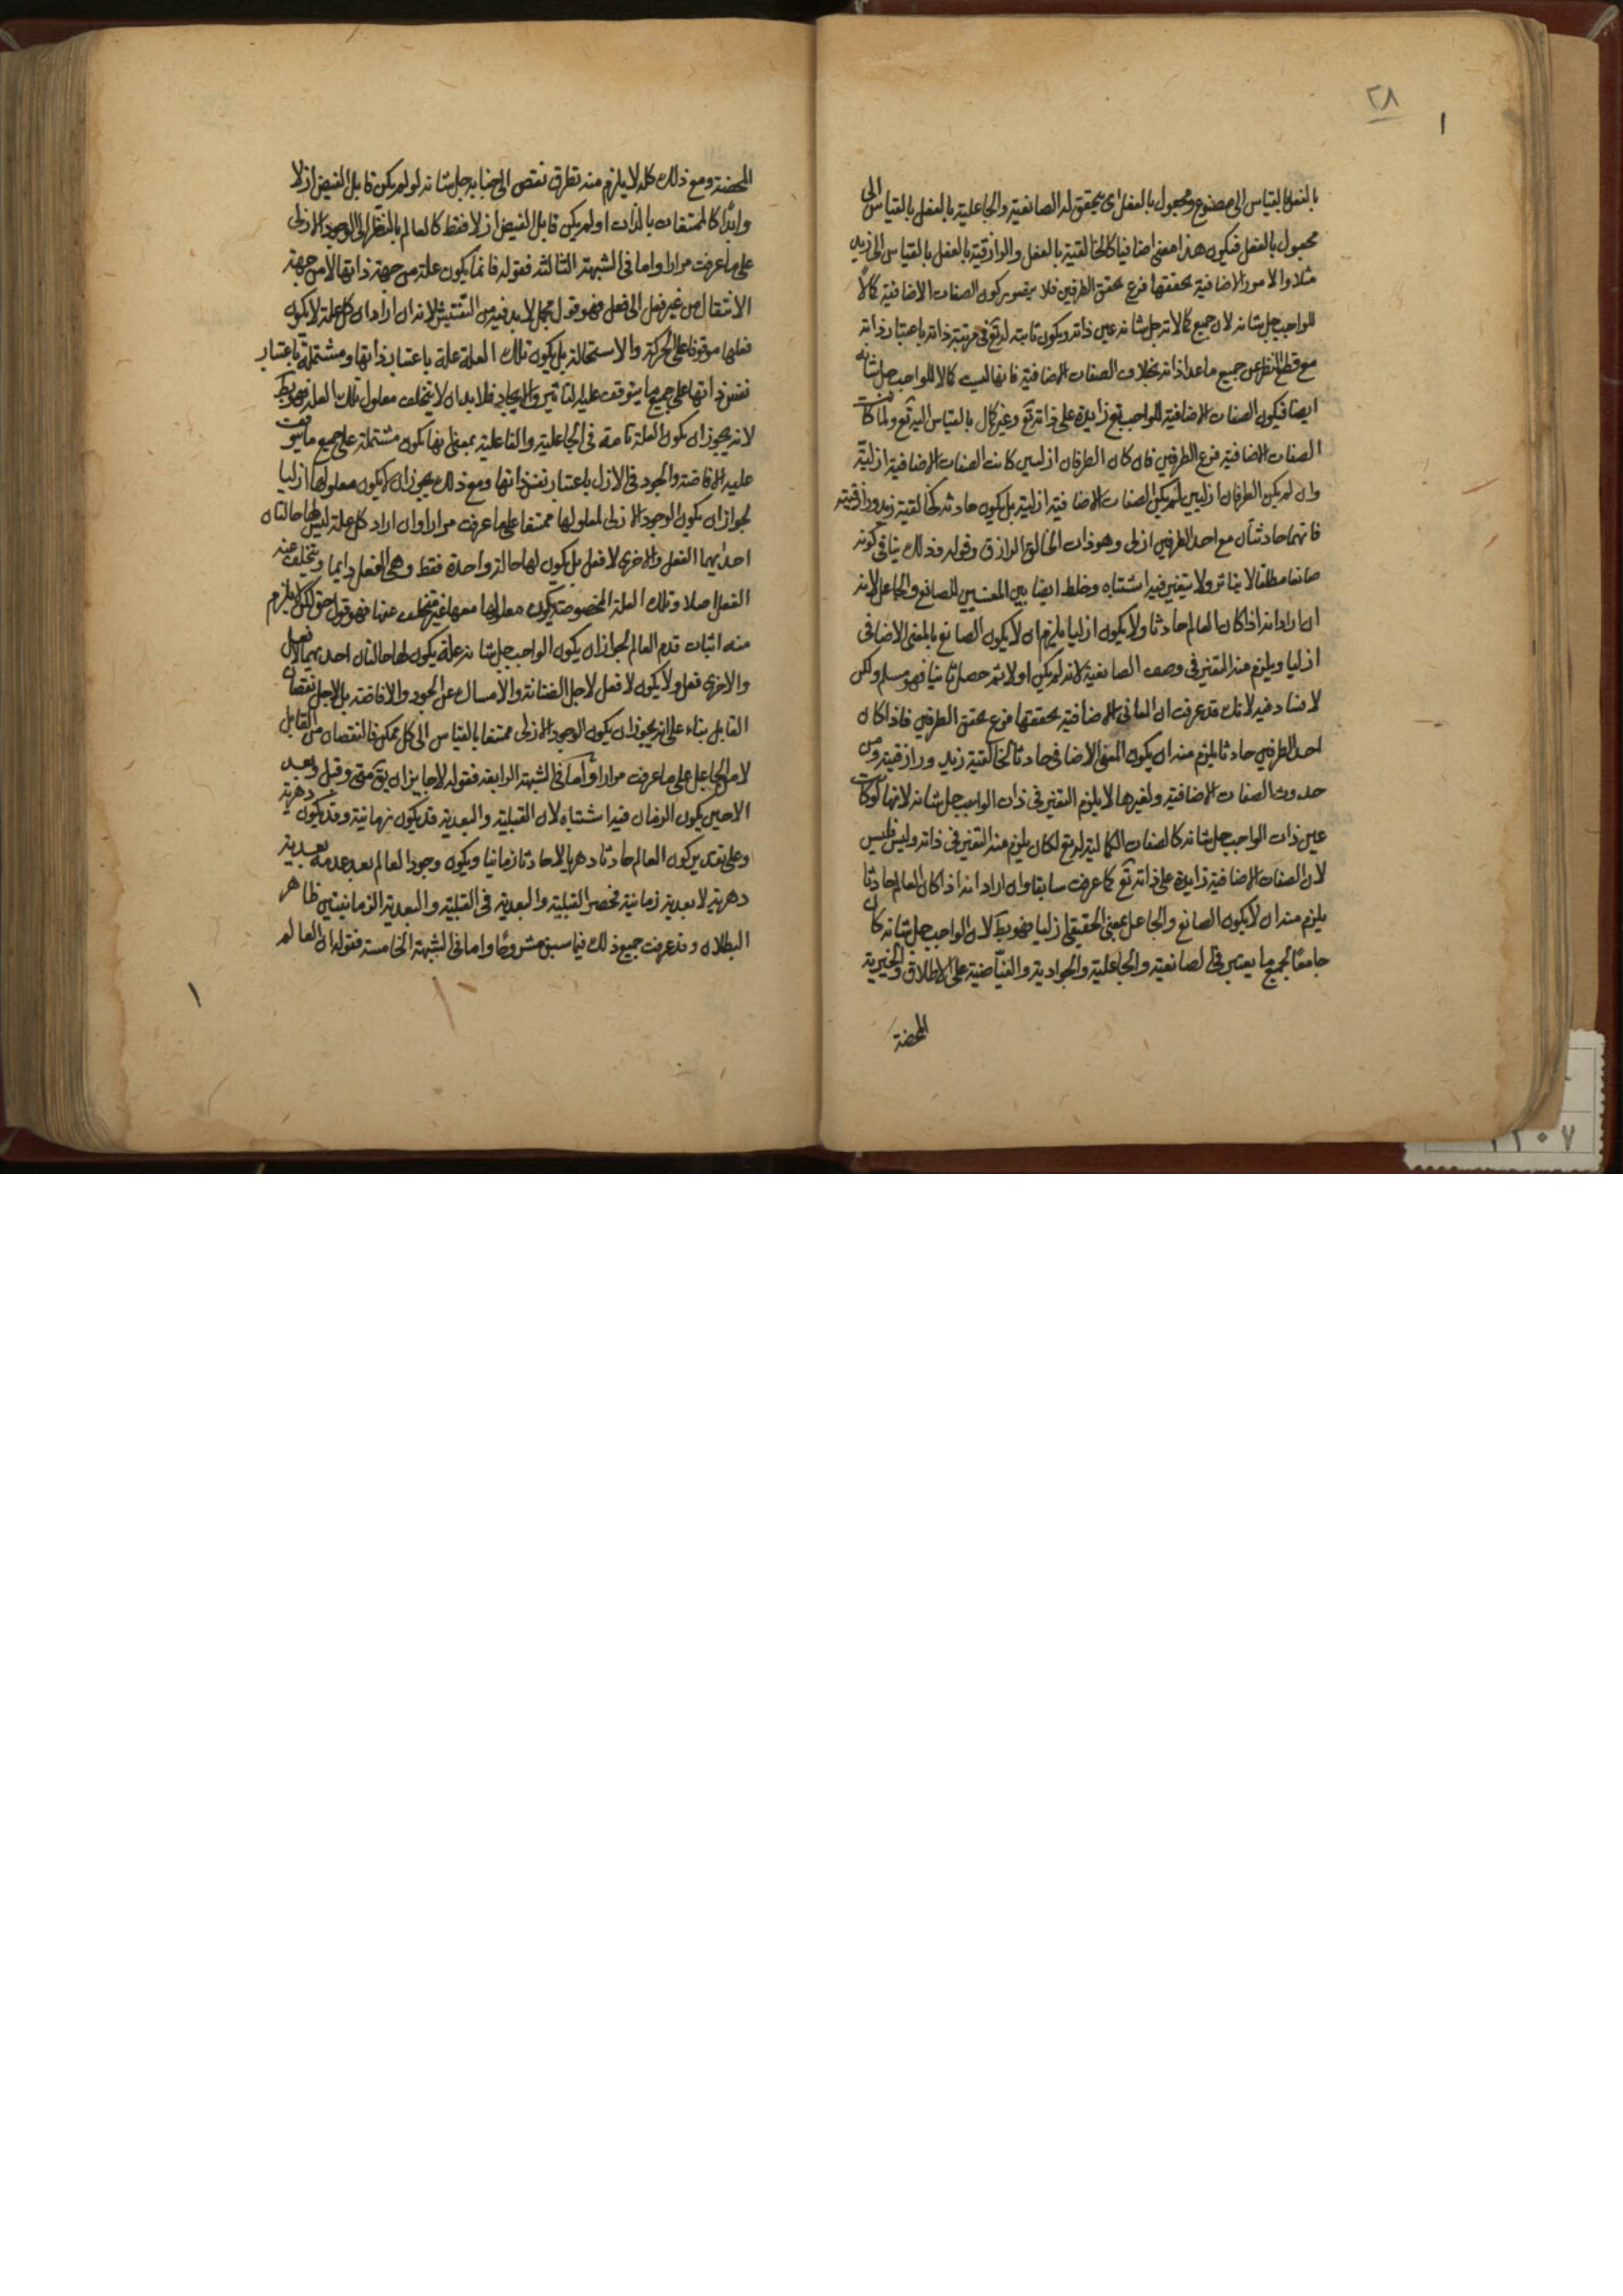 ٢٨
١
بالفعل بالقياس الى مصنوع ومجعول بالفعل اى يتحقق له الصانعية والجاعلية بالفعل بالقياس الى
مجعول بالفعل فيكون هذا معنى اضافيا كالخالقية بالفعل والرازقية بالفعل بالقياس الى زيد
مثلا والامور الاضافية تحققها فرع تحقق الطرفين فلا يتصور كون الصفات الاضافية كمالا
للواجب جل شانه لان جميع كمالاته جل شانه عين ذاته ويكون ثابتة له تع فى مرتبة ذاته باعتبار ذاته
مع قطع النظر عن جميع ما عدا ذاته بخلاف الصفات الاضافية فانها ليست كمالا للواجب جل شانه
ايضا فيكون الصفات الاضافية للواجب تع زايدة على ذاته تع وغير كمال بالقياس اليه تع ولما كانت
الصفات الاضافية فرع الطرفين فان كان الطرفان ازليين كانت الصفات الاضافية ازلية
وان لم يكن الطرفان ازليين لم يكن الصفات الاضافية ازلية بل يكون حادثة كخالقية زيد ورازقيته
فانهما حادثتان مع احد الطرفين ازلى وهو ذات الخالق الرازق وقوله فذلك ينافى كونه
صانعا مطلقا لا يتاثر ولا يتغير فيه اشتباه وخلط ايضا بين المعنيين للصانع والجاعل لانه
ان اراد انه اذا كان العالم حادثا ولا يكون ازليا يلزم ان لا يكون الصانع بالمعنى الاضافى
ازليا ويلزم منه التغير فى وصف الصانعية لانه لم يكن اولا ثم حصل ثانيا فهو مسلم ولكن
لا فساد فيه لانك قد عرفت ان المعانى الاضافية تحققها فرع تحقق الطرفين فاذا كان
احد الطرفين حادثا يلزم منه ان يكون المعنى الاضافى حادثا كخالقية زيد ورازقيته ومن
حدوث الصفات الاضافية وتغيرها لا يلزم التغير فى ذات الواجب جل شانه لانها لو كانت
عين ذات الواجب جل شانه كالصفات الكمالية له تع لكان يلزم منه التغير فى ذاته وليس فليس
لان الصفات الاضافية زايدة على ذاته تع كما عرفت سابقا وان اراد انه اذا كان العالم حادثا
يلزم منه ان لا يكون الصانع والجاعل بمعنى الحقيقى ازليا فهو بط لان الواجب جل شانه كان
جامعا لجميع ما يعتبر فى الصانعية والجاعلية والجوادية والفياضية على الاطلاق والخيرية
المحضة
المحضة ومع ذلك كله لا يلزم منه تطرق نقص الى جنابه جل شانه لو لم يكن قابل الفيض ازلا
وابدا كالممتنعات بالذات او لم يكن قابل الفيض ازلا فقط كالعالم بالنظر الى الوجود الازلى
على ما عرفت مرارا واما فى الشبهة الثالثة فقوله فانما يكون علة من جهة ذاتها لا من جهة
الانتقال من غير فعل الى فعل فهو قول مجمل لا بد فيه من التفتيش لانه ان اراد ان كل علة لا يكون
فعلها موقوفا على الحركة والاستحالة بل يكون تلك العلة علة باعتبار ذاتها ومشتملة باعتبار
نفس ذاتها على جميع ما يتوقف عليه التاثير والايجاد فلا بد ان لا يتخلف معلول تلك العلة فهو بط
لانه يجوز ان يكون العلة تامة فى الجاعلية والفاعلية بمعنى انها يكون مشتملة على جميع ما يتوقف
عليه الافاضة والجود فى الازل باعتبار نفس ذاتها ومع ذلك يجوز ان لا يكون معلولها ازليا
لجواز ان يكون الوجود الازلى لمعلولها ممتنعا على ما عرفت مرارا وان اراد كل علة ليس لها حالتان
احديهما الفعل والاخرى لا فعل بل يكون لها حالة واحدة فقط وهى الفعل دايما ويتخلف عنه
الفعل اصلا وتلك العلة المخصوصة يكون معلولها معها غير متخلف عنها فهو قول حق لكن لا يلزم
منه اثبات قدم العالم لجواز ان يكون الواجب جل شانه علة يكون لها حالتان احديهما لا فعل
والاخرى فعل ولا يكون لا فعل لاجل الضنانة والامساك عن الجود والافاضة بل لاجل نقصان
القابل بناء على انه يجوز ان يكون الوجود الازلى ممتنعا بالقياس الى كل ممكن فالنقصان من القابل
لا من الجاعل على ما عرفت مرارا واما فى الشبهة الرابعة فقوله لا جايز ان يق متى وقبل وبعد
الا حين يكون الزمان فيه اشتباه لان القبلية والبعدية قد يكون زمانية وقد يكون دهرية
وعلى تقدير كون العالم حادثا دهريا لا حادثا زمانيا ويكون وجود العالم بعد عدمه بعدية
دهرية لا بعدية زمانية فحصر القبلية والبعدية فى القبلية والبعدية الزمانيتين ظاهر
البطلان وقد عرفت جميع ذلك فيما سبق مشروحا واما فى الشبهة الخامسة فقوله ان العالم
١